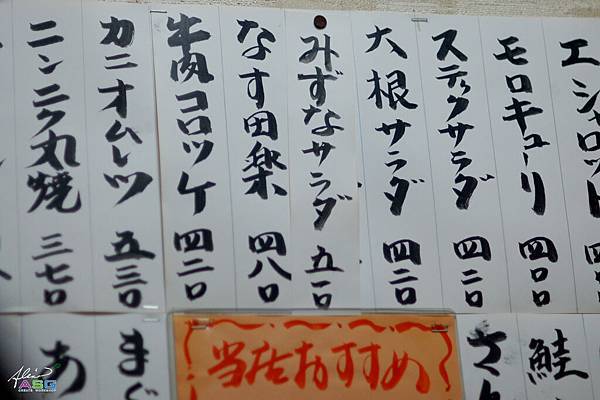 エシャロット 四
モロキューリ 四〇〇
スティックサラダ 四二〇
大根サラダ 四二〇
みずなサラダ 五一〇
なす田楽 四八〇
牛肉コロッケ 四二〇
カニオムレツ 五三〇
ニンニク丸焼 三七〇
鮭
さ
当店おすすめ
まぐ
あ
ASG